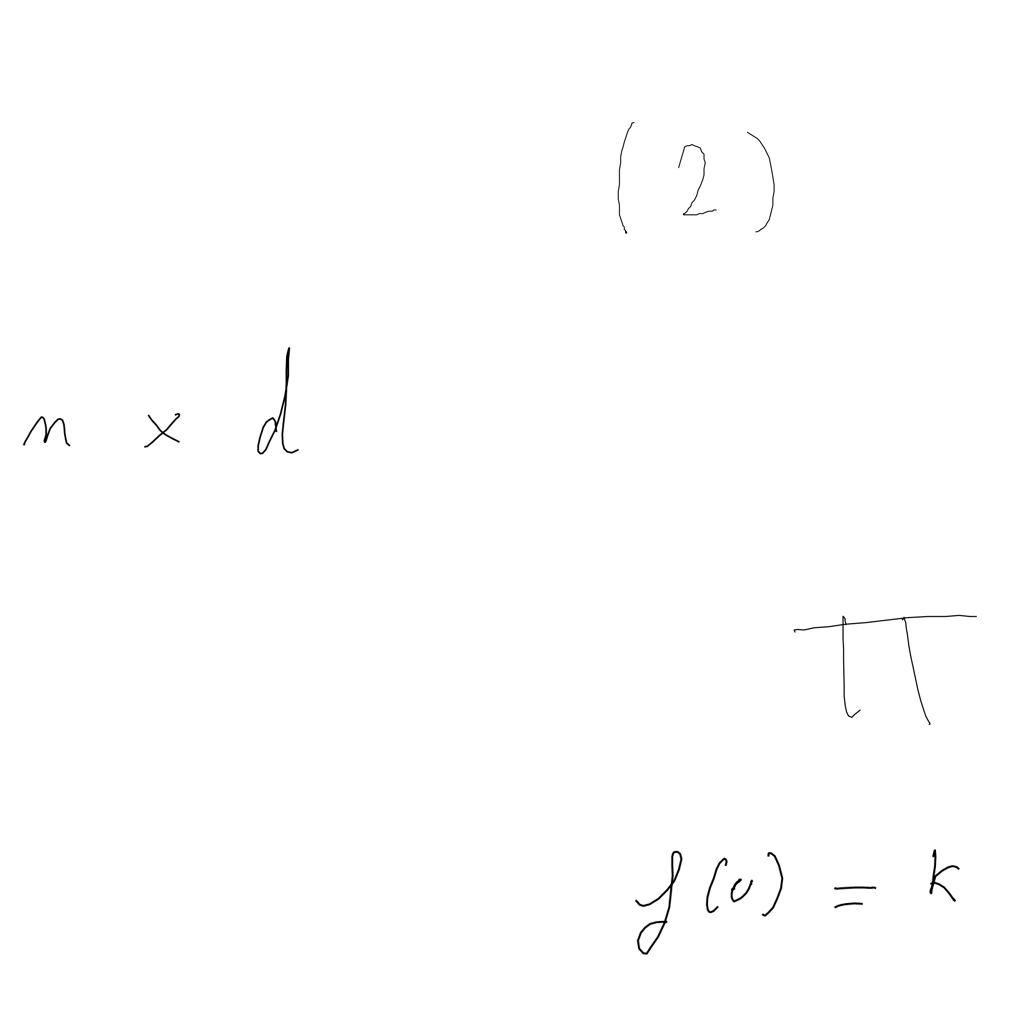 ( 2 )
n × d
π
f(0) = k